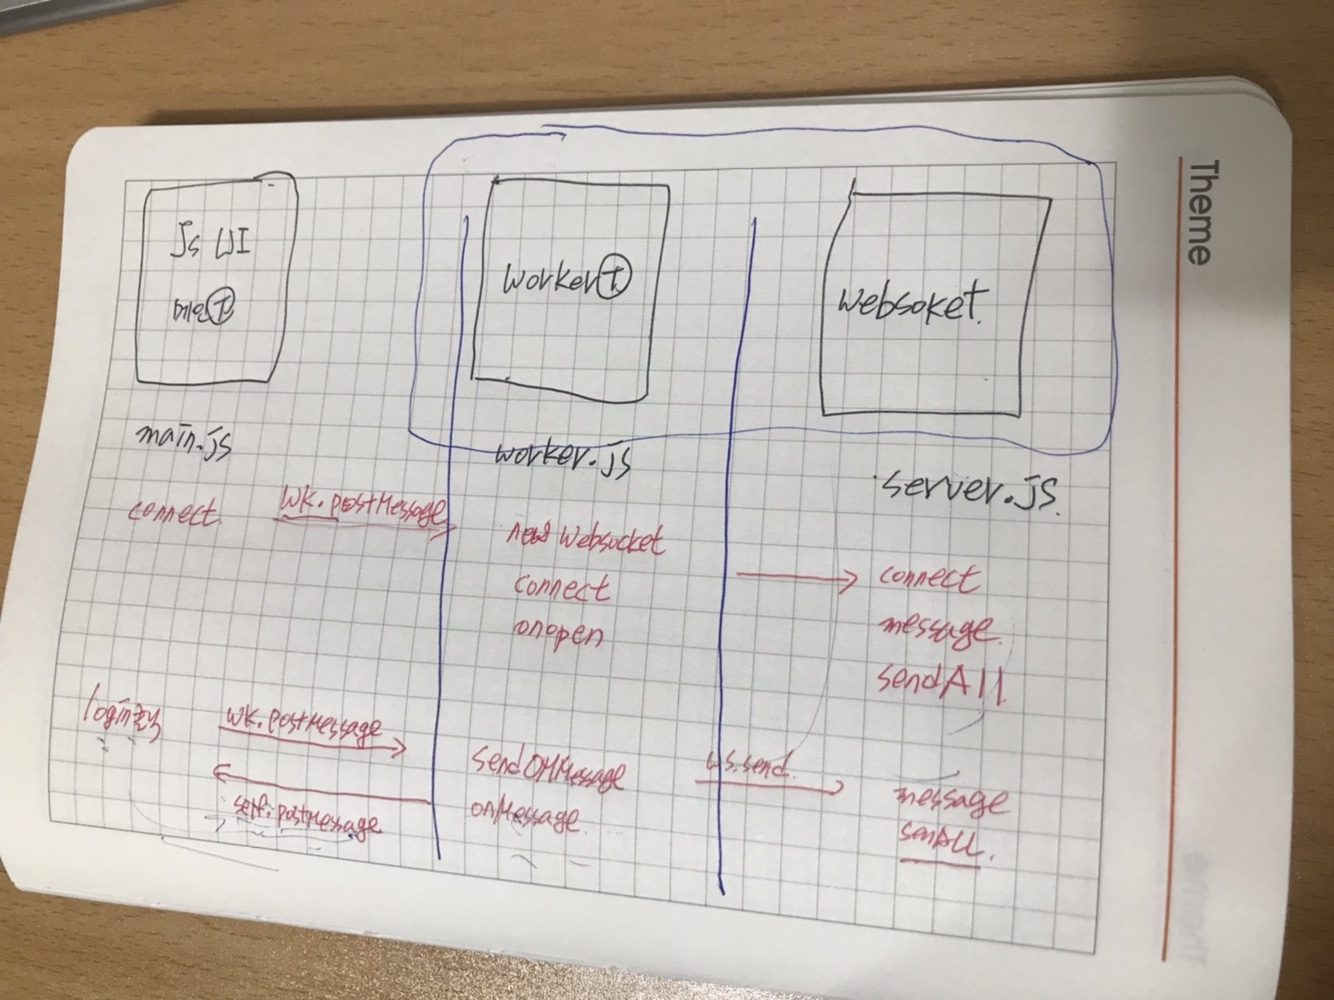 Theme
Js UI
worker T
websoket.
main.js
worker.js
server.js.
connect
wk.postMessage
new Websocket
connect
onopen
connect
message
sendAll
login
wk.postMessage
self.postMessage
onMessage
ws.send
message